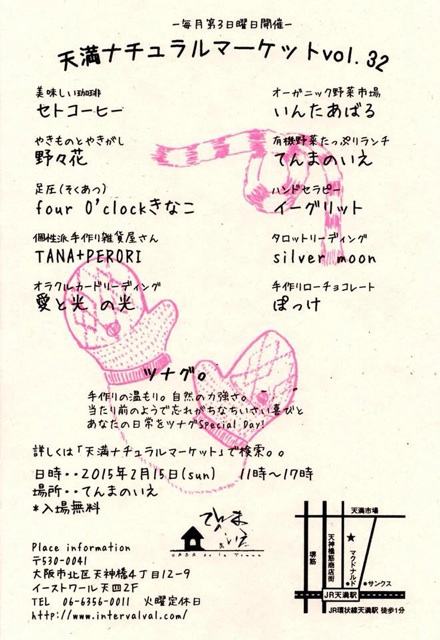 -毎月第3日曜日開催-
天満ナチュラルマーケットvol.32
美味しい珈琲
セトコーヒー
オーガニック野菜市場
いんたあばる
やきものとやきがし
野々花
有機野菜たっぷりランチ
てんまのいえ
足圧(そくあつ)
four O'clockきなこ
ハンドセラピー
イーグリット
個性派手作り雑貨屋さん
TANA+PERORI
タロットリーディング
silver moon
オラクルカードリーディング
愛と光 の光
手作りローチョコレート
ぽっけ
ツナグ。
手作りの温もり。自然の力強さ。
当たり前のようで忘れがちなちいさい喜びと
あなたの日常をツナグSpecial Day!
詳しくは「天満ナチュラルマーケット」で検索。。
日時・・2015年2月15日(sun) 11時〜17時
場所・・てんまのいえ
*入場無料
てんま
の
いえ
Place information
〒530-0041
大阪市北区天神橋4丁目12-9
イーストワール天四2F
TEL 06-6356-0011 火曜定休日
http://www.intervalval.com/
天満市場
堺筋
天神橋筋商店街
マクドナルド
サンクス
JR天満駅
JR環状線天満駅 徒歩1分